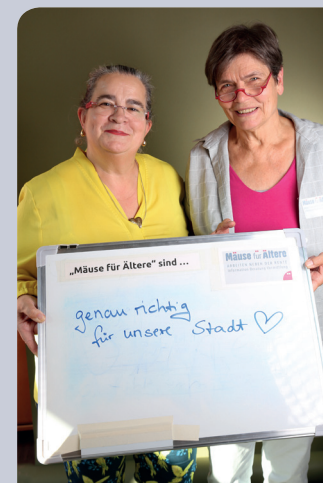 „Mäuse für Ältere“ sind ...
Mäuse für Ältere
genau richtig
für unsere Stadt ♡